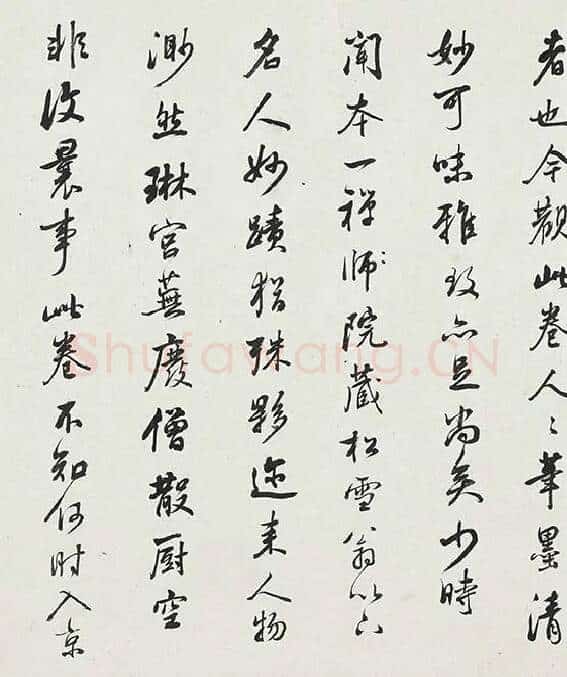 者也今觀此卷人〻筆墨清
妙可味雅致亦足尚矣少時
聞本一禪師院藏松雪翁以下
名人妙蹟猶殊夥迩来人物
渺然琳宮蕪廢僧散厨空
非復曩事此卷不知何時入京
Shufawang.CN